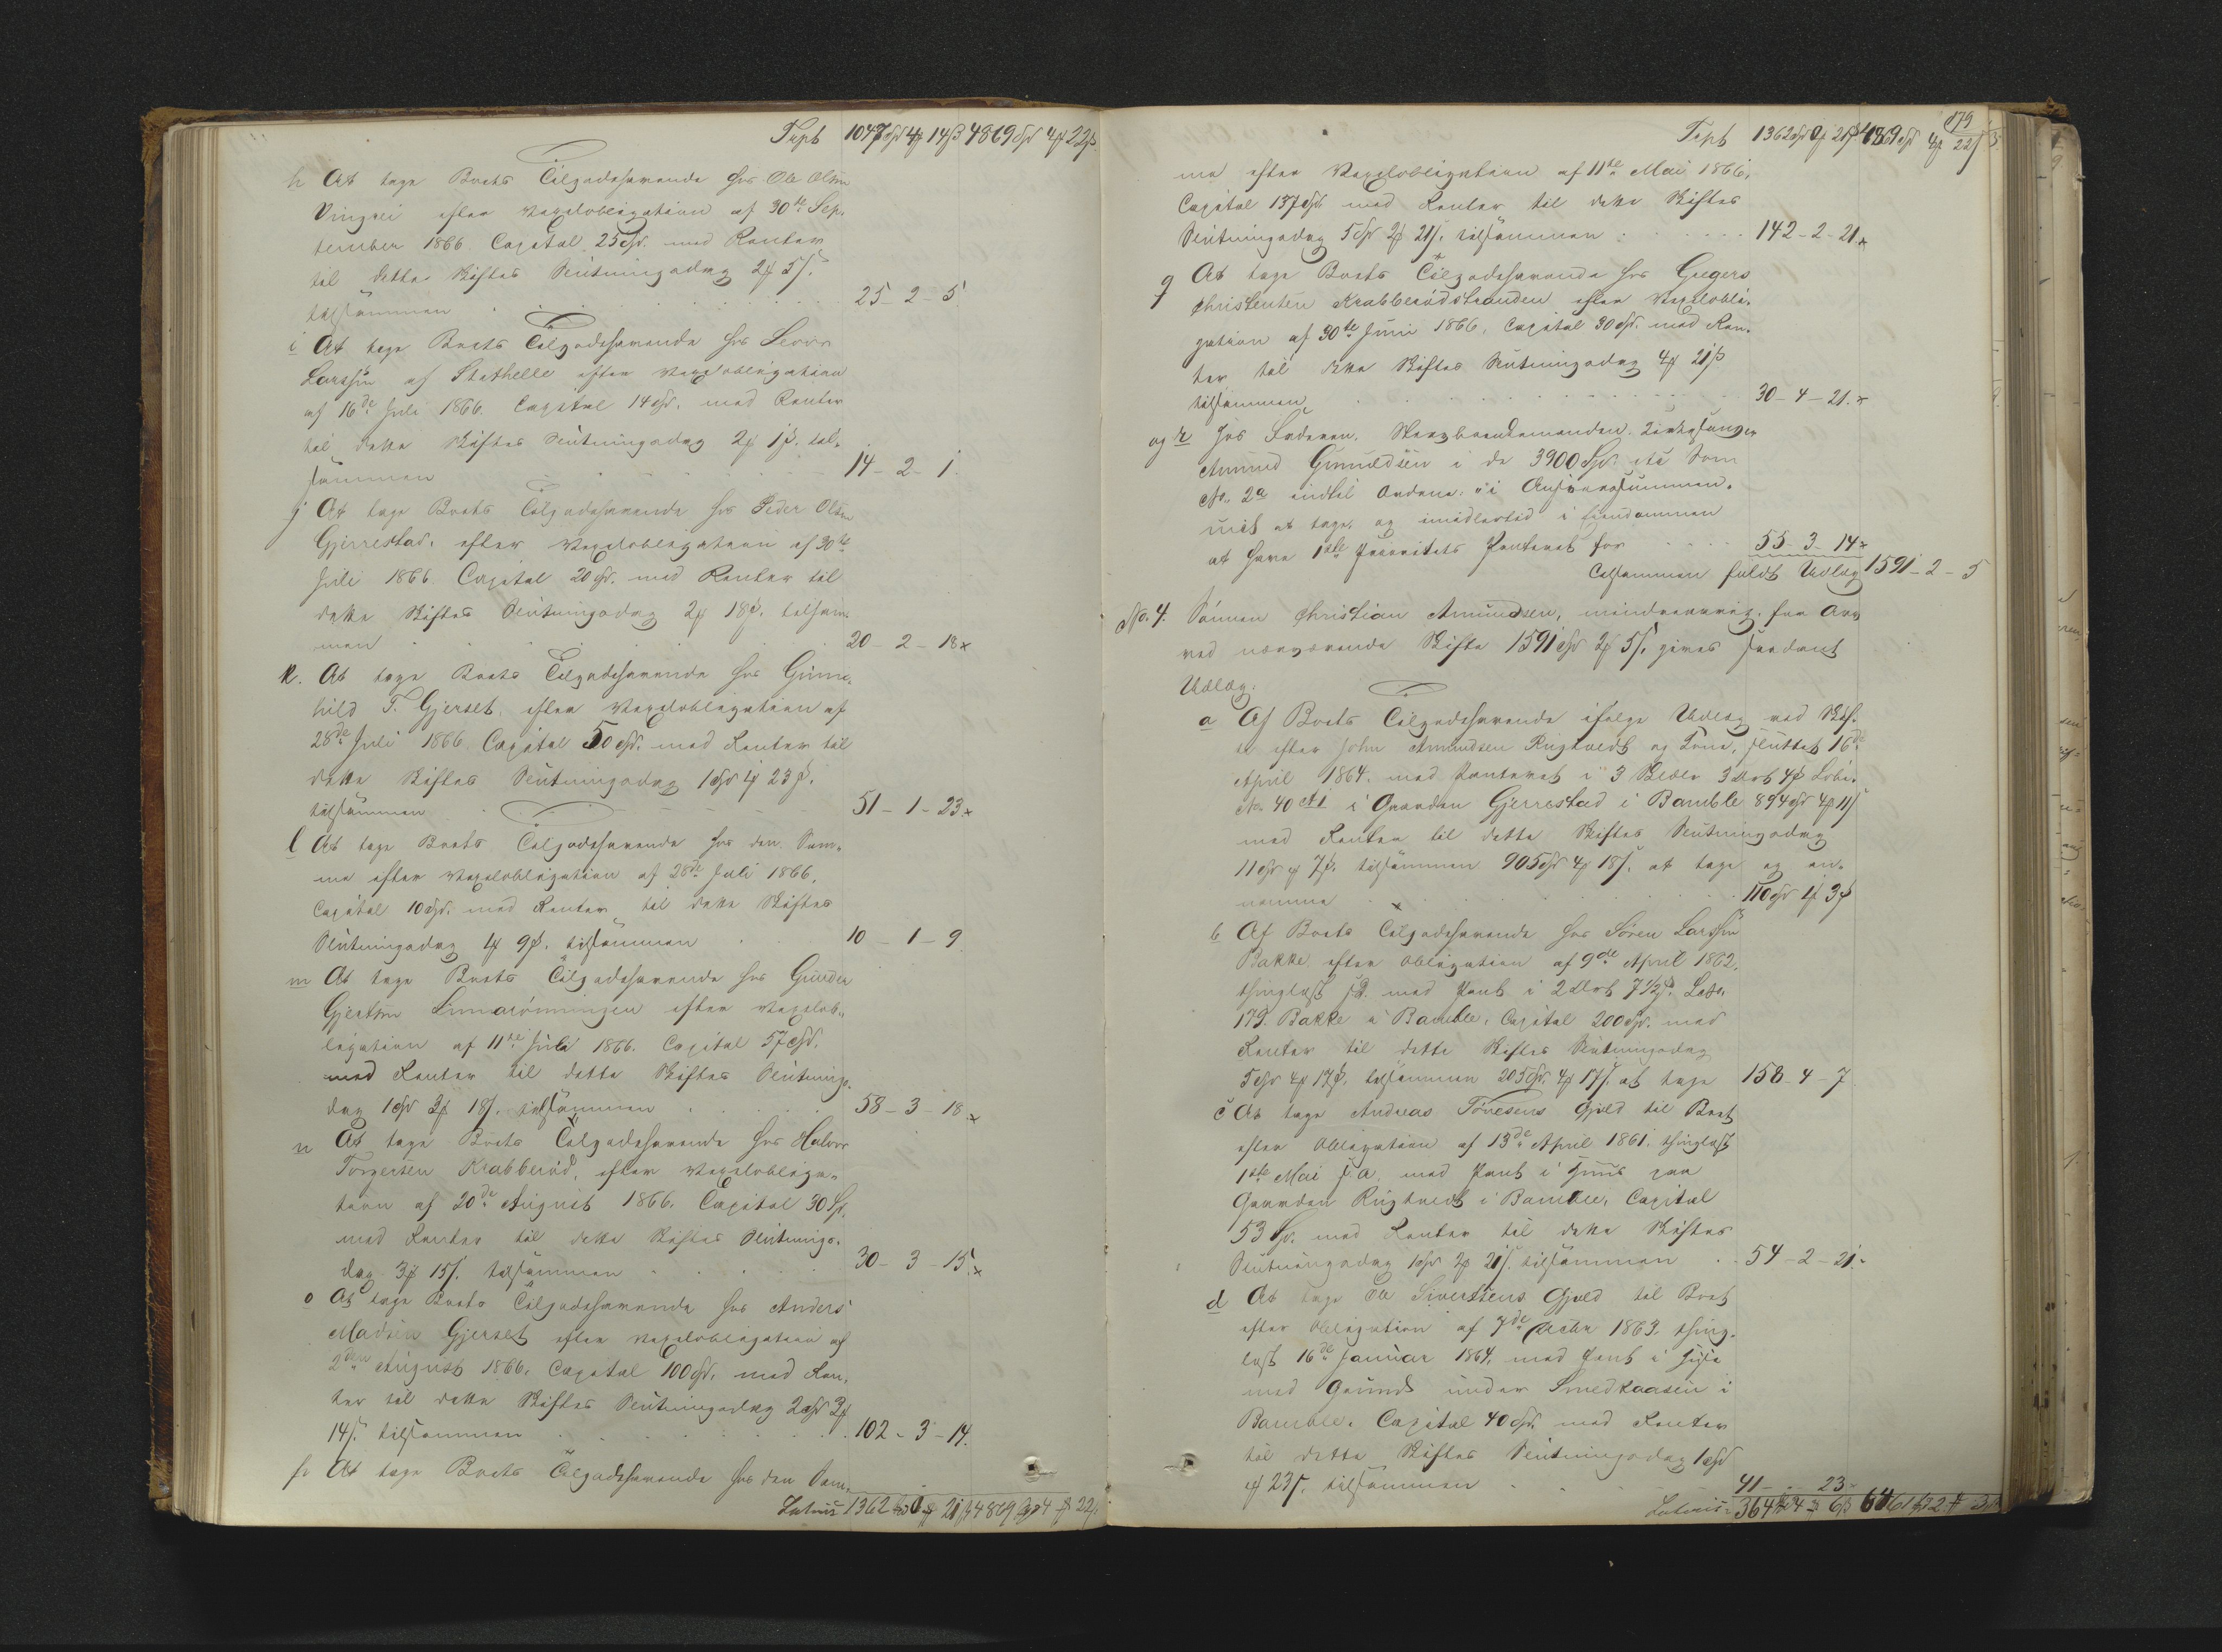 Tspt 1047 Spd 4 # 14 ß 4869 Spd 4 # 22 ß
h At tage Boets Tilgodehavende hos Ole Olsen
Vingrei efter Vexelobligation af 30te Sep-
tember 1866. Capital 25 Spd. med Renter
til dette Skiftes Slutningsdag 2 # 5 ß.
tilsammen 25 - 2 - 5
i At tage Boets Tilgodehavende hos
Larssen af Stathelle efter Vexelobligation
af 16de Juli 1866. Capital 14 Spd. med Renter
til dette Skiftes Slutningsdag 2 # 1 ß. til-
sammen 14 - 2 - 1.
j At tage Boets Tilgodehavende hos Peder Olsen
Gjerrestad, efter Vexelobligation af 30te
Juli 1866. Capital 20 Spd. med Renter til
dette Skiftes Slutningsdag 2 # 18 ß. tilsam-
men 20 - 2 - 18 x
k. At tage Boets Tilgodehavende hos Gunne-
hild T. Gjerset, efter Vexelobligation af
28de Juli 1866. Capital 50 Spd. med Renter til
dette Skiftes Slutningsdag 1 Spd 1 # 23 ß.
tilsammen 51 - 1 - 23 x
l At tage Boets Tilgodehavende hos den Sam-
me efter Vexelobligation af 28de Juli 1866.
Capital 10 Spd. med Renter til dette Skiftes
Slutningsdag 1 # 9 ß. tilsammen 10 - 1 - 9
m At tage Boets Tilgodehavende hos Gunder
Gjertsen efter Vexelob-
ligation af 11te Juli 1866. Capital 57 Spd.
med Renter til dette Skiftes Slutnings-
dag 1 Spd 3 # 18 ß. tilsammen 58 - 3 - 18 x
n At tage Boets Tilgodehavende hos Halvor
Torgersen Krabberød, efter Vexelobliga-
tion af 20de August 1866. Capital 30 Sp.
med Renter til dette Skiftes Slutnings-
dag 3 # 15 ß. tilsammen 30 - 3 - 15 x
o At tage Boets Tilgodehavende hos Anders
Madsen Gjerset efter Vexelobligation af
2den August 1866. Capital 100 Spd. med Ren-
ter til dette Skiftes Slutningsdag 2 Spd 3 #
14 ß. tilsammen 102 - 3 - 14.
p At tage Boets Tilgodehavende hos den Sam-
Latus 1362 Spd 0 # 21 ß 4869 Spd 4 # 22 ß
179
Tspt 1362 Spd 0 # 21 ß 4869 Spd 4 # 22 ß
me efter Vexelobligation af 11te Mai 1866.
Capital 137 Spd. med Renter til dette Skiftes
Slutningsdag 5 Spd 2 # 21 ß. tilsammen 142 - 2 - 21 x
q At tage Boets Tilgodehavende hos Gregers
Christensen Krabberødstranden efter Vexelobli-
gation af 30te Juni 1866. Capital 30 Spd. med Ren-
ter til dette Skiftes Slutningsdag 4 # 21 ß
tilsammen 30 - 4 - 21. x
og r hos Faderen, Kirkesanger
Amund Gunuldsen i de 3900 Spd. som
No. 2a indtil Ordene: "i Ansvarssummen"
at tage, og imidlertid i Eiendommen
at have 1ste Prioritets Panteret for 55 - 3 - 14 x
Tilsammen fuldt Udlæg 1591 - 2 - 5
No. 4. Sønnen Christian Amundsen, mindreaarig, faa Arv
ved nærværende Skifte 1591 Spd 2 # 5 ß, gives saadant
Udlæg:
a Af Boets Tilgodehavende ifølge Udlæg ved Skif-
te efter John Amundsen Rugtvedt og Kone, sluttet 16de
April 1864, med Panteret i 3 Skleer 3 Ort 4 ß Løbe-
No. 40 i Gaarden Gjerrestad i Bamble 894 Spd 4 # 11 ß
med Renter til dette Skiftes Slutningsdag
11 Spd # 7 ß. tilsammen 905 Spd 4 # 18 ß. at tage og an-
namme 110 Spd 1 # 3 ß
b Af Boets Tilgodehavende hos Søren Larssen
Bakke efter Obligation af 9de April 1862,
thinglæst s.D. med Pant i 2 Ort 7 1/2 ß. Løbe-
179. Bakke i Bamble. Capital 200 Spd. med
Renter til dette Skiftes Slutningsdag
5 Spd 4 # 17 ß. tilsammen 205 Spd. 4 # 17 ß. at tage 158 - 4 - 7
c At tage Andreas Tovesens Gjeld til Boet
efter Obligation af 13de April 1861. thinglæst
1ste Mai s.A. med Pant i Huus paa
Gaarden Rugtvedt i Bamble, Capital
53 Sp. med Renter til dette Skiftes
Slutningsdag 1 Spd 2 # 21 ß. tilsammen 54 - 2 - 21.
d At tage Ole Sivertsens Gjeld til Boet
efter Obligation af 7de 1863. thing-
læst 16de Januar 1864, med Pant i Huse
med Grund under Smedkaasen i
Bamble. Capital 40 Spd. med Renter
til dette Skiftes Slutningsdag 1 Spd
# 23 ß. tilsammen 41 - - 23
Latus 364 Spd 4 # 6 ß 6461 Spd 2 # 3 ß